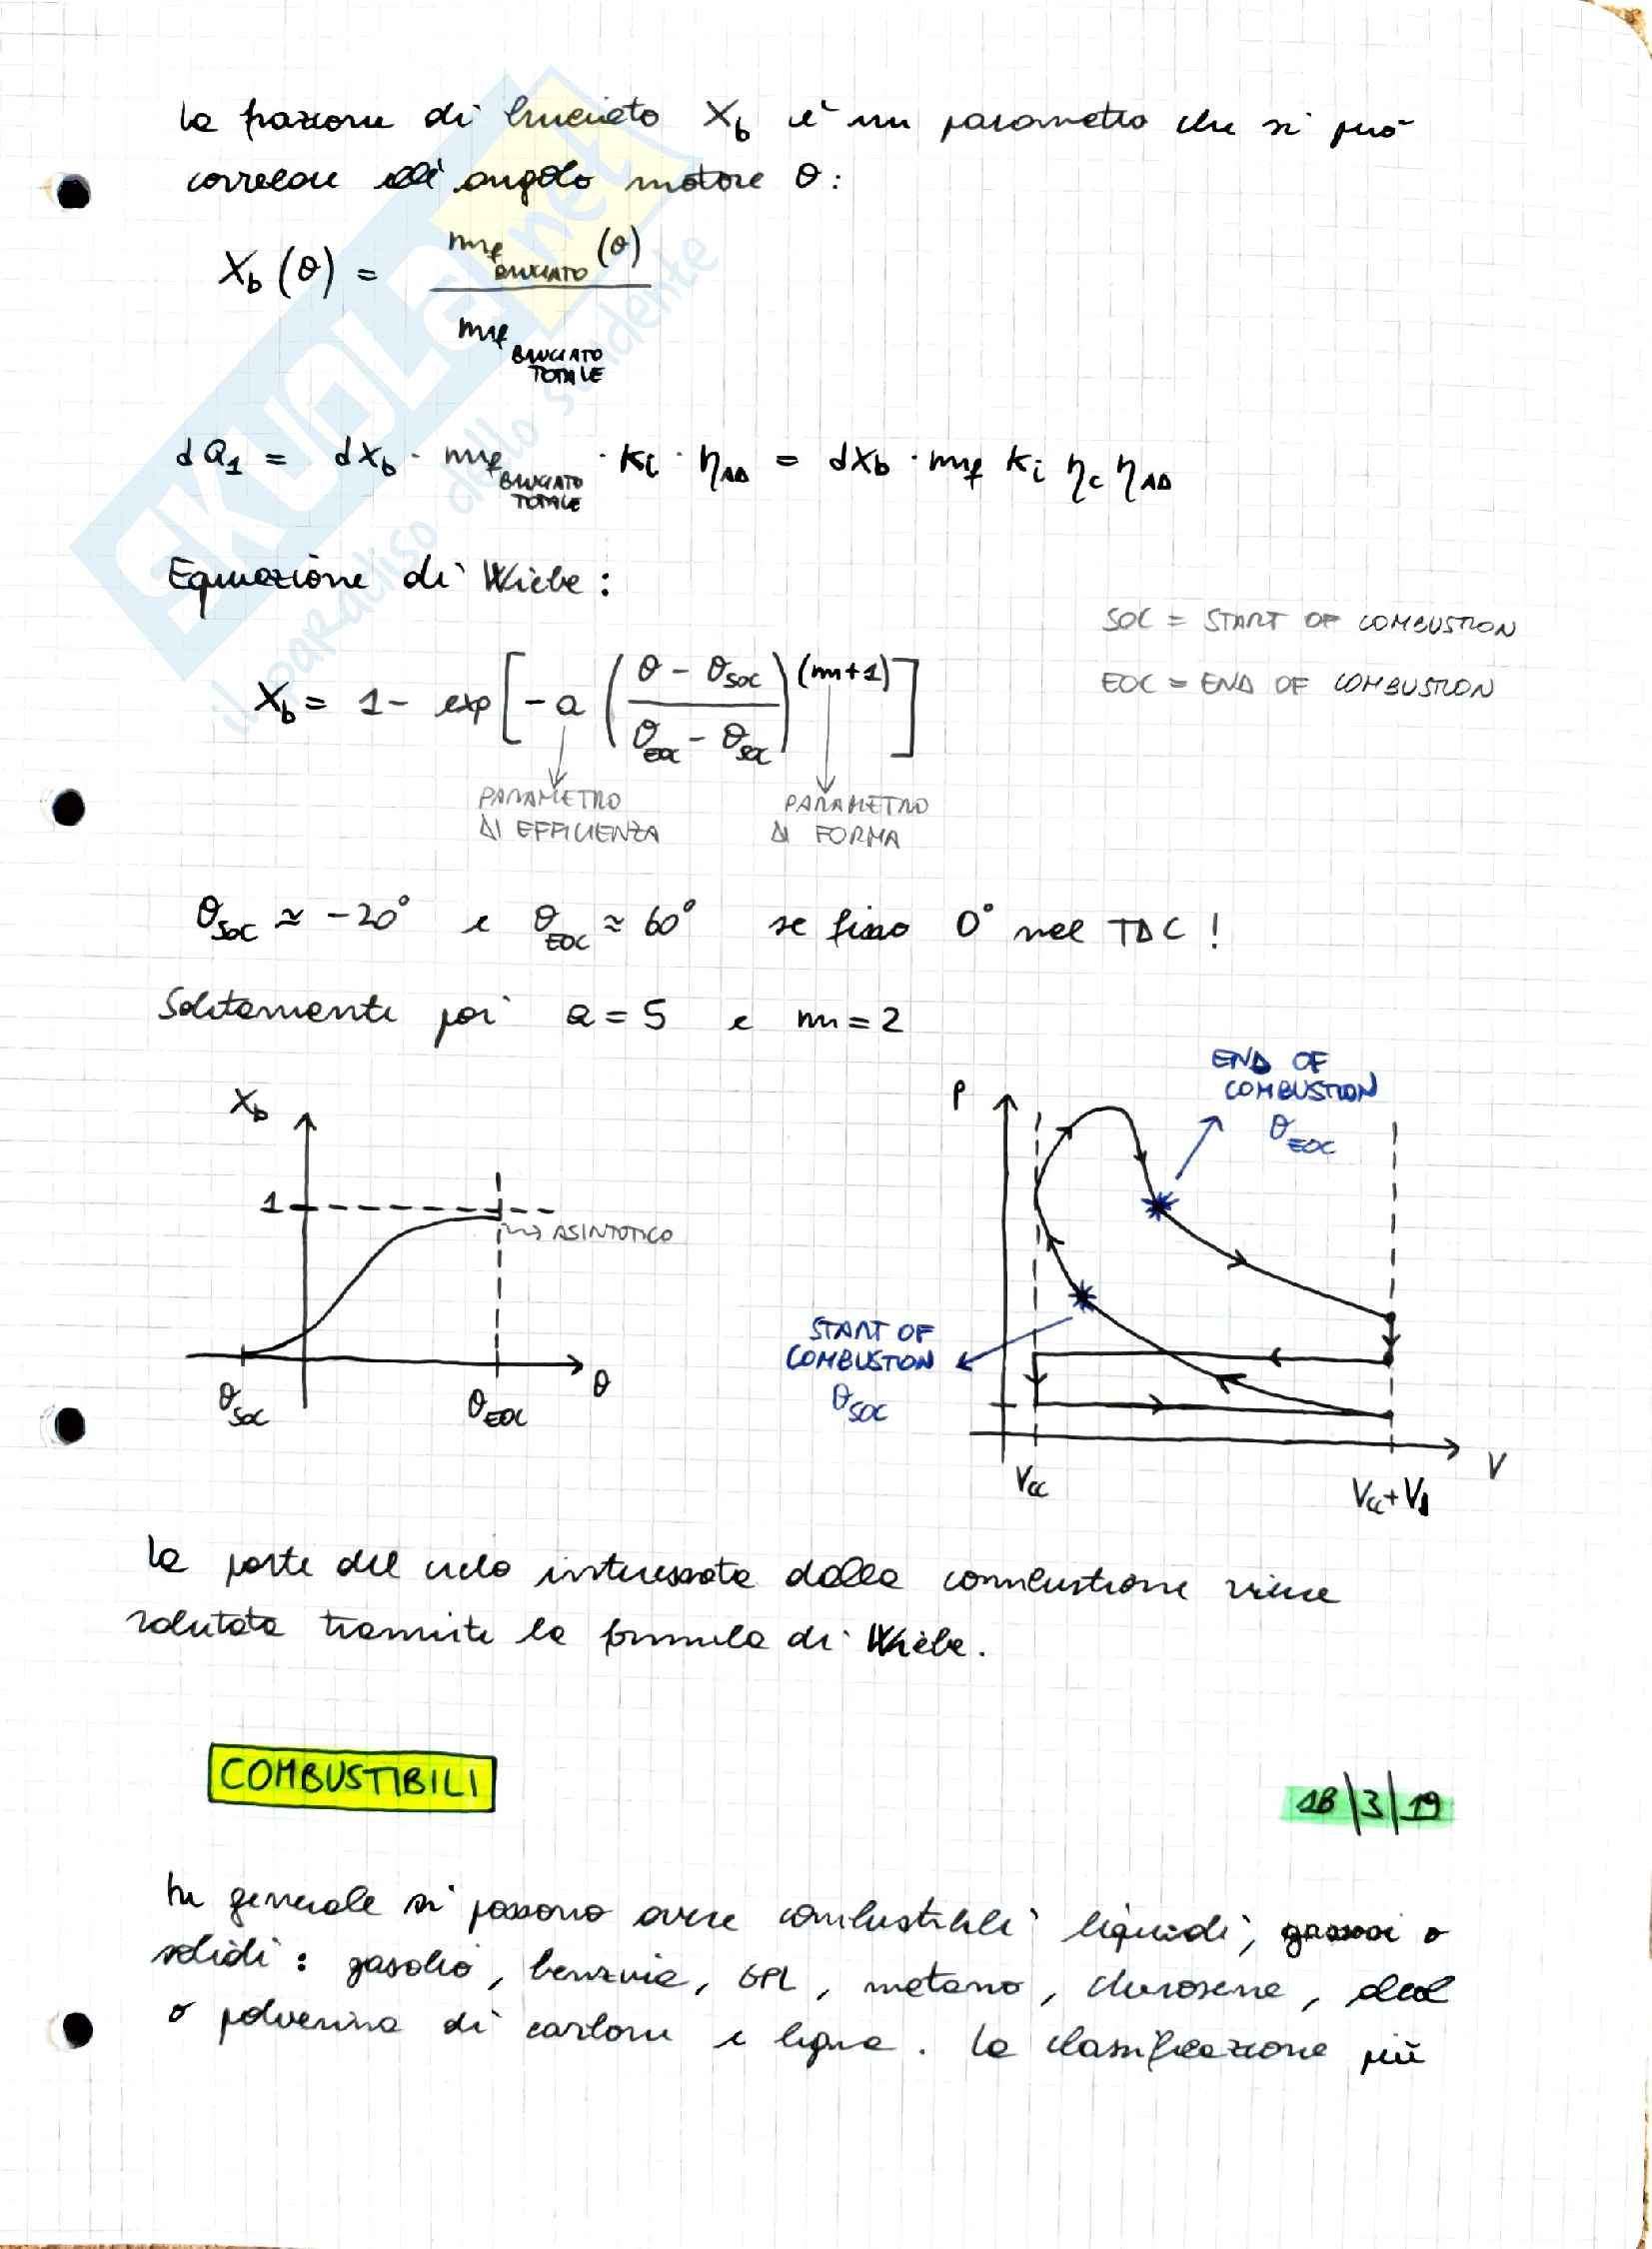 La frazione di bruciato Xb è un parametro che si può
correlare all'angolo motore θ:
Xb (θ) = mf BRUCIATO (θ) / mf BRUCIATO TOTALE
dQ1 = dXb · mf BRUCIATO TOTALE · Ki · ηAD = dXb · mf Ki ηc ηAD
Equazione di Wiebe:
SOC = START OF COMBUSTION
EOC = END OF COMBUSTION
Xb = 1 - exp [ - a ( (θ - θSOC) / (θEOC - θSOC) )^(m+1) ]
PARAMETRO
DI EFFICIENZA
PARAMETRO
DI FORMA
θSOC ≈ -20° e θEOC ≈ 60° se fisso 0° nel TDC !
Solitamente poi a = 5 e m = 2
Xb
1
ASINTOTICO
θSOC
θEOC
θ
P
END OF
COMBUSTION
θEOC
START OF
COMBUSTION
θSOC
Vcc
Vcc + Vd
V
La parte del ciclo interessata dalla combustione viene
valutata tramite la formula di Wiebe.
COMBUSTIBILI
18/3/19
In generale si possono avere combustibili liquidi, gassosi o
solidi: gasolio, benzina, GPL, metano, cherosene,
o polverina di carbone e legna. La classificazione più
SKUOLA.net
il paradiso dello studente